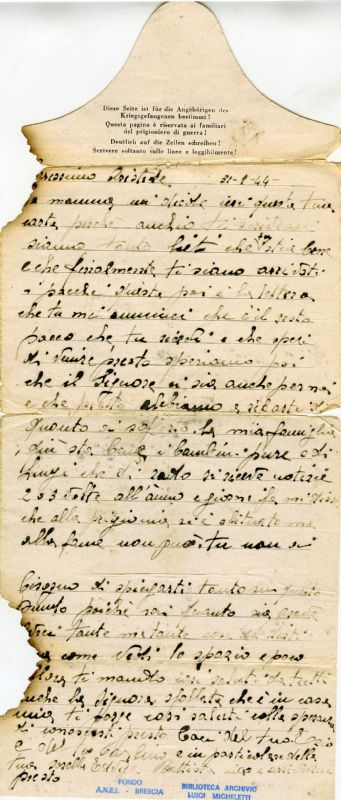 Diese Seite ist für die Angehörigen des
Kriegsgefangenen bestimmt!
Questa pagina è riservata ai familiari
del prigioniero di guerra!
Deutlich auf die Zeilen schreiben!
Scrivere soltanto sulle linee e leggibilmente!
31-8-44
mamma mi diede ieri questa tua
carta perchè anchio ti
siamo tanto lieti che tu stia bene
e che finalmente ti siano arrivati
i pacchi questa poi è la lettera
che tu mi annunci che è il sesto
pacco che tu ricevi e che speri
di venire presto speriamo poi
che il Signore ci sia anche per noi
e che presto abbiamo a
quanto ci la mia famiglia
sto bene i bambini pure e di
Luigi che di rado si riceve notizie
2 o 3 volte all'anno e giorni fa mi disse
che alla prigionia si è abituato ma
alla fame non può. tu non ai
bisogno di spiegarti tanto su questo
punto poichè sai quanto sia
tante ma tante cose
come vedi lo spazio è poco
allora ti mando cari saluti da tutti
anche la signora sfollata che è in casa
mia ti porge cari saluti colla speranza
di conoscerti presto Baci dal tuo
e in particolare dalla
tua sorella
presto
FONDO
A.N.E.I. - BRESCIA
BIBLIOTECA ARCHIVIO
LUIGI MICHELETTI